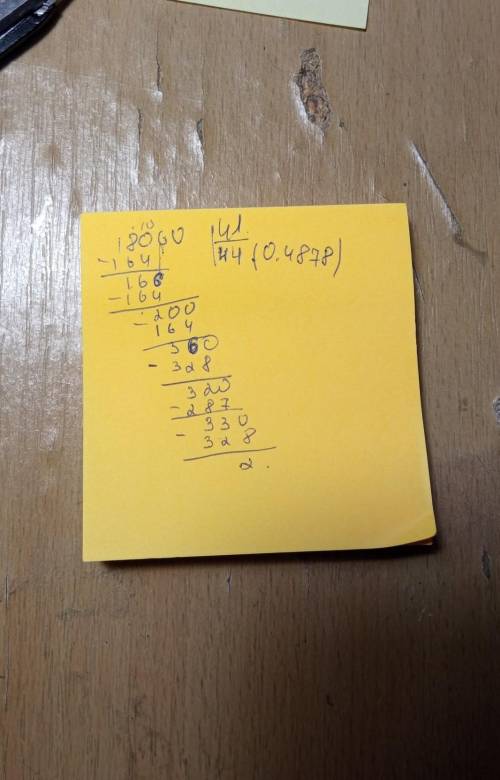 18060 41
- 164 44 (0.4878)
166
- 164
200
- 164
360
- 328
320
- 287
330
- 328
2.